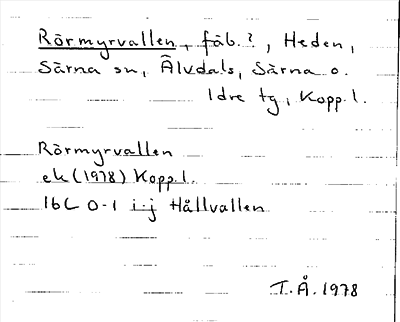 Rörmyrvallen, fäb.?, Heden,
Särna sn, Älvdals, Särna o.
Idre tg, Kopp.l.
Rörmyrvallen
ek (1978) Kopp.l.
16C 0-1 i-j Hållvallen
T.Å. 1978